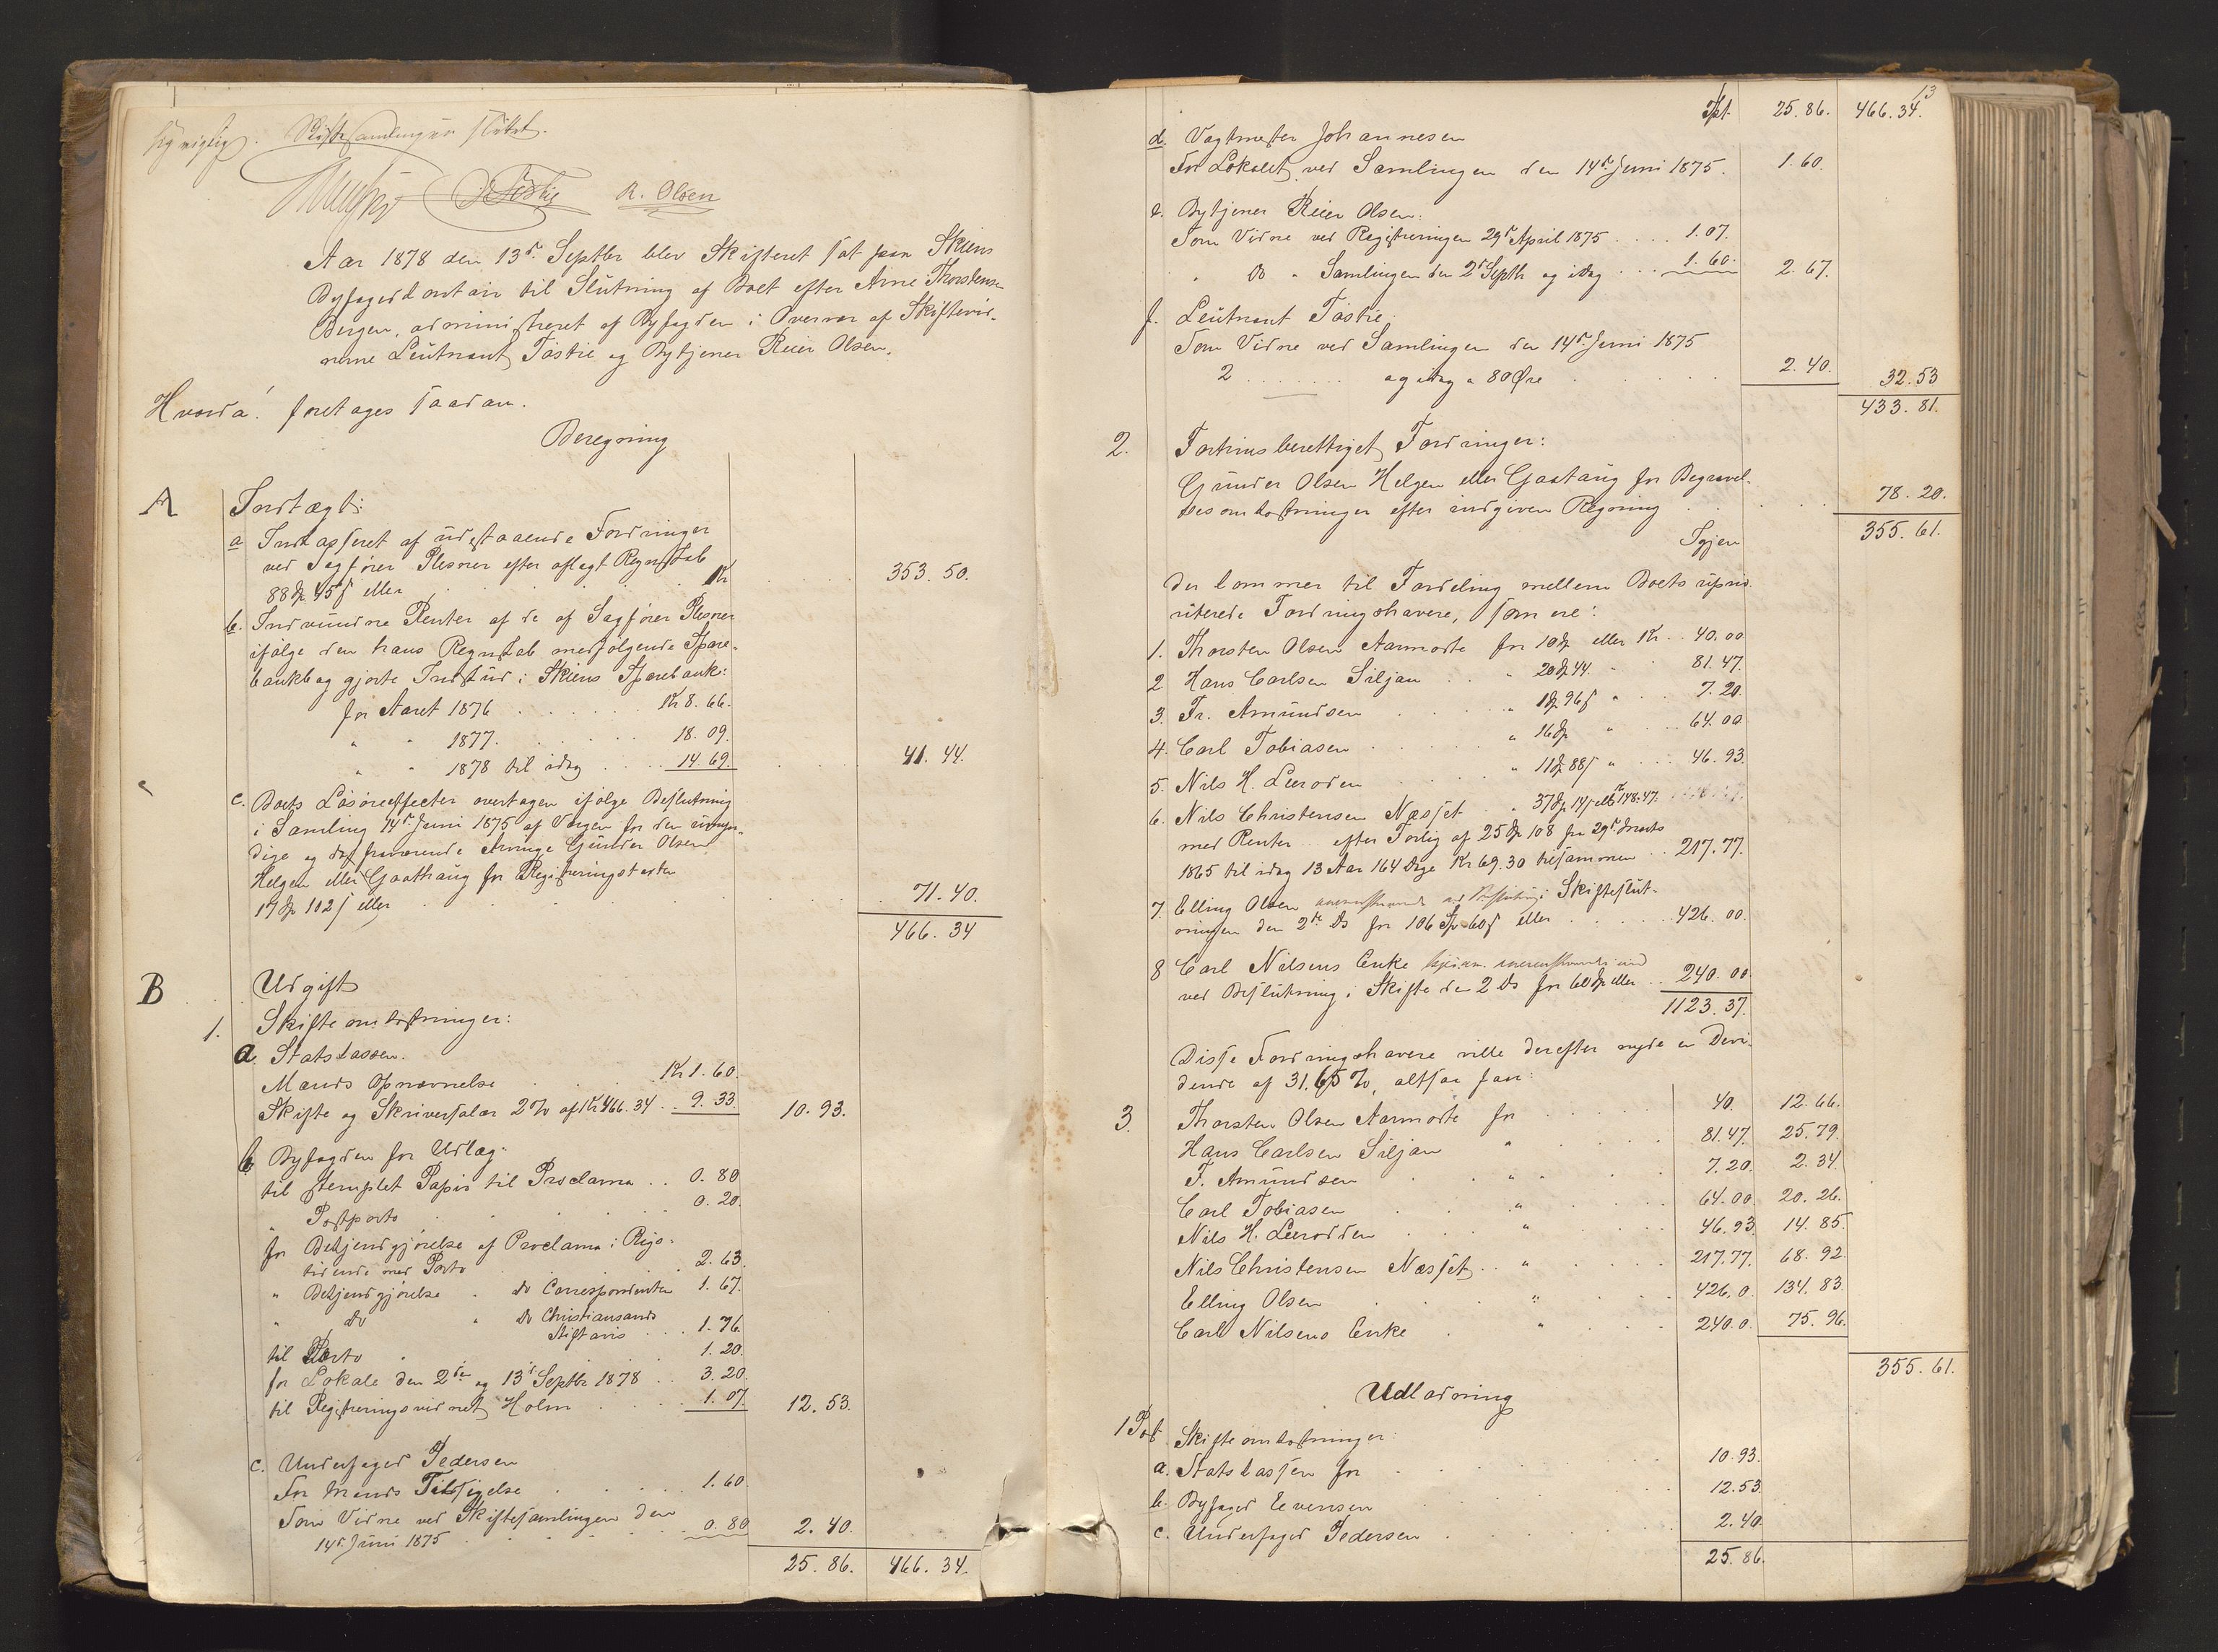 rigtig. Skiftesamlingen sluttet.
R. Olsen
Aar 1878 den 13de Septbr blev Skifteret sat paa Skiens
Byfogedcontoir til Slutning af Boet efter Arne Thorstensen
Bergen, administreret af Byfogden i Overvær af Skiftevid-
nerne Leutnant Tostie og Bytjener Reier Olsen.
Hvorda! foretages saadan.
Beregning
A Indtægt:
a Indkasseret af udestaaende Fordringer
ved Sagfører Plesner efter aflagt Regnskab
88 Spd 45 s eller . . . Kr 353. 50.
b. Indvundne Renter af de af Sagfører Plesner
ifølge den hans Regnskab medfølgende Spare-
bankbog gjorte Indskud i Skiens Sparebank:
for Aaret 1876 . . . Kr 8. 66.
" " 1877. . . . 18. 09.
" " 1878 til idag . . . 14. 69. 41. 44.
c. Boets Løsøreeffecter overtagen ifølge Beslutning
i Samling 14de Juni 1875 af Værgen for den umyn-
dige og fraværende Arvinge Gunder Olsen
Helgen eller Gaathaug for Registreringstaxten
17 Spd 102 s eller . . . 71. 40.
466. 34
B Udgift
1. Skifteomkostninger:
a. Statskassen.
Mænds Opnævnelse . . . Kr 1. 60.
Skifte og Skriversalær 2 % af Kr 466. 34 . 9. 33. 10. 93.
b Byfogden for Udlæg:
til stemplet Papir til Proclama . . 0. 80
" Postporto . . . 0. 20.
for Bekjendgjørelse af Proclama i Rigs-
tidende med Porto . . . 2. 63.
" Bekjendgjørelse " do Correspondenten 1. 67.
" do " do Christiansands
Stiftavis . . . 1. 76.
til Porto . . . 1. 20.
for Lokale den 2den og 13de Septbr 1878 . . 3. 20.
til Registreringsvidnet Holm . . . 1. 07. 12. 53.
c. Underfoged Pedersen
For Mænds Tilsigelse . . . 1. 60.
Som Vidne ved Skiftesamlingen den
14de Juni 1875 . . . 0. 80 2. 40.
25. 86. 466. 34.
13
Tpt. 25. 86. 466. 34.
d. Vagtmester Johannesen
For Lokalet ved Samlingen den 14de Juni 1875. 1. 60.
e. Bytjener Reier Olsen:
Som Vidne ved Registreringen 29de April 1875 . . . . 1. 07.
" do " Samlingen den 2de Septbr og idag . . . 1. 60. 2. 67.
f. Leutnant Tostie
Som Vidne ved Samlingen den 14de Juni 1875
2 . . . og idag a 80 Øre . . . 2. 40. 32. 53
433. 81.
2. Fortrinsberettiget Fordringer:
Gunder Olsen Helgen eller Gaataug for Begravel-
sesomkostninger efter indgiven Regning . . . 78. 20.
Igjen 355. 61.
der kommer til Fordeling mellem Boets uprivi-
riterede Fordringshavere, som ere:
1. Thorsten Olsen Aarmodte for 10 Spd eller Kr . . 40. 00
2 Hans Carlsen Siljan . . " 20 Spd 44 " . 81. 47.
3. Fr. Amundsen . . . " 1 Spd 96 s " . . 7. 20.
4. Carl Tobiasen . . . " 16 Spd " . . 64. 00
5. Nils H. Leeroden . . . " 11 Spd 88 s " . . . 46. 93.
6. Nils Christensen Næsset . " 37 Spd 14 s eller Kr 148. 47.
med Renter efter Forlig af 25 Spd 108 fra 29de Marts
1865 til idag 13 Aar 164 Dage Kr 69. 30 tilsammen . . 217. 77.
7. Elling Olsen Beslutning i Skifteslut-
ningen den 2de ds for 106 Sp 60 s eller . . . 426. 00.
8 Carl Nilsens Enke
ved Beslutning i Skifte den 2 ds for 60 Spd eller . . 240. 00.
1123. 37.
Disse Fordringshavere ville derefter nyde en Divi-
dende af 31.65 %, altsaa faar:
3. Thorsten Olsen Aarmodte for . . . 40. 12. 66.
Hans Carlsen Siljan " . . . 81. 47. 25. 79.
F. Amundsen . . " . . . 7. 20. 2. 34.
Carl Tobiasen . . " . . . 64. 00 20. 26.
Nils H. Leerodden . . " . . . 46. 93. 14. 85.
Nils Christensen Næsset . . " . . . 217. 77. 68. 92.
Elling Olsen . . " . . . 426. 0. 134. 83.
Carl Nilsens Enke . . " . . . 240. 0. 75. 96.
355. 61.
Udlodning
1 Post Skifteomkostninger:
a. Statskassen for . . . 10. 93.
b. Byfoged Evensen . . . 12. 53.
c. Underfoged Pedersen . . . 2. 40.
25. 86.